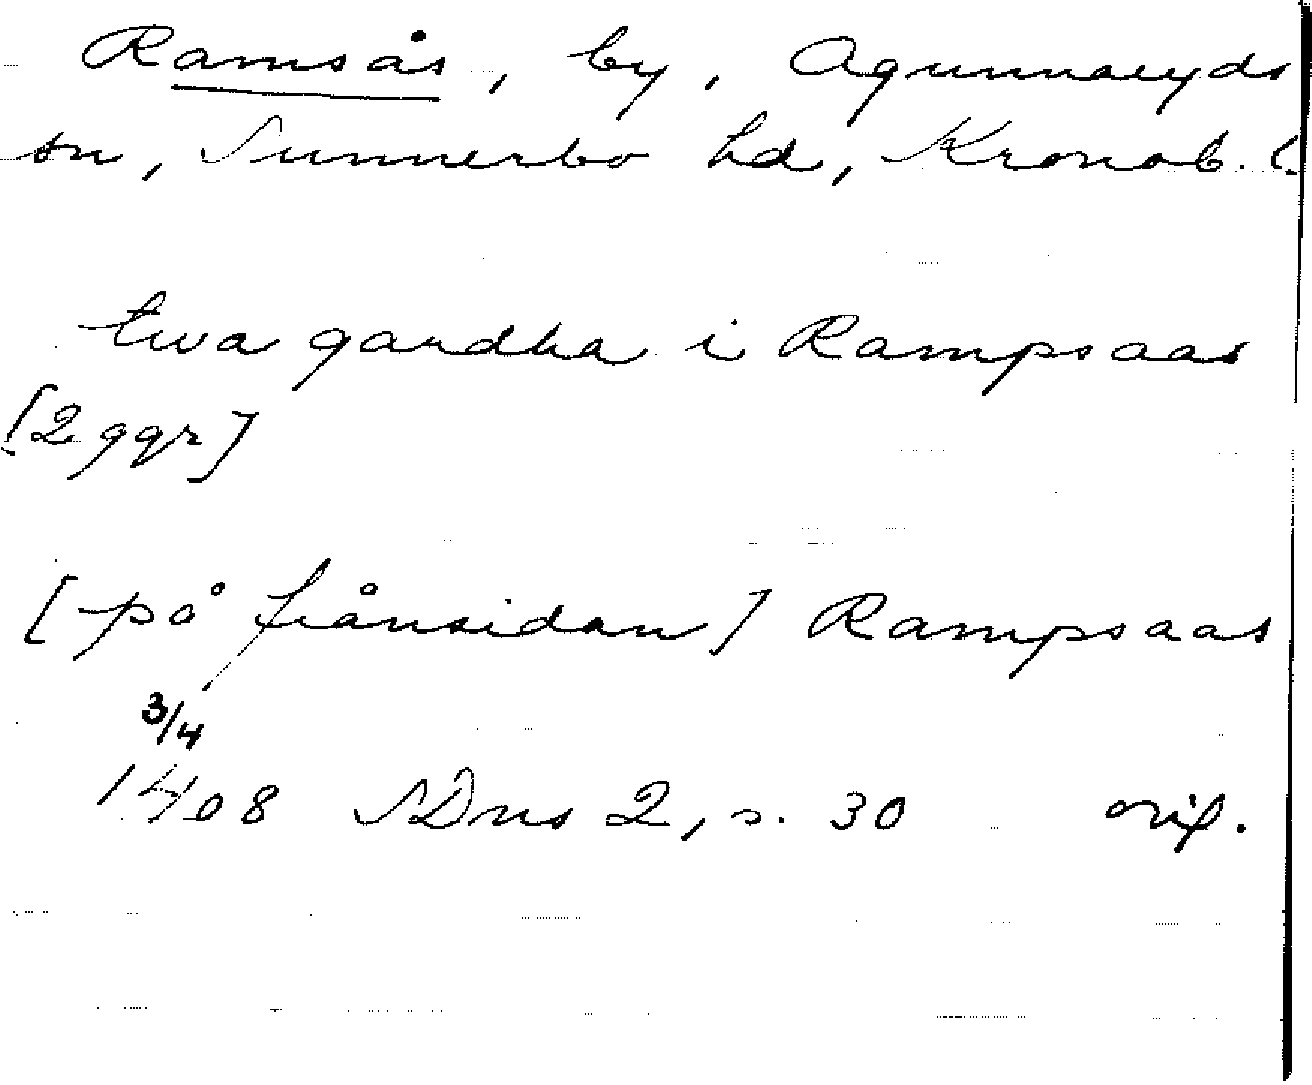 Ramsås, by, Agunnaryds
sn, Sunnerbo hd, Kronob. l.
twa gardha i Rampsaas
[2 ggr]
[på frånsidan] Rampsaas
3/4
1408 SDns 2, s. 30 orig.